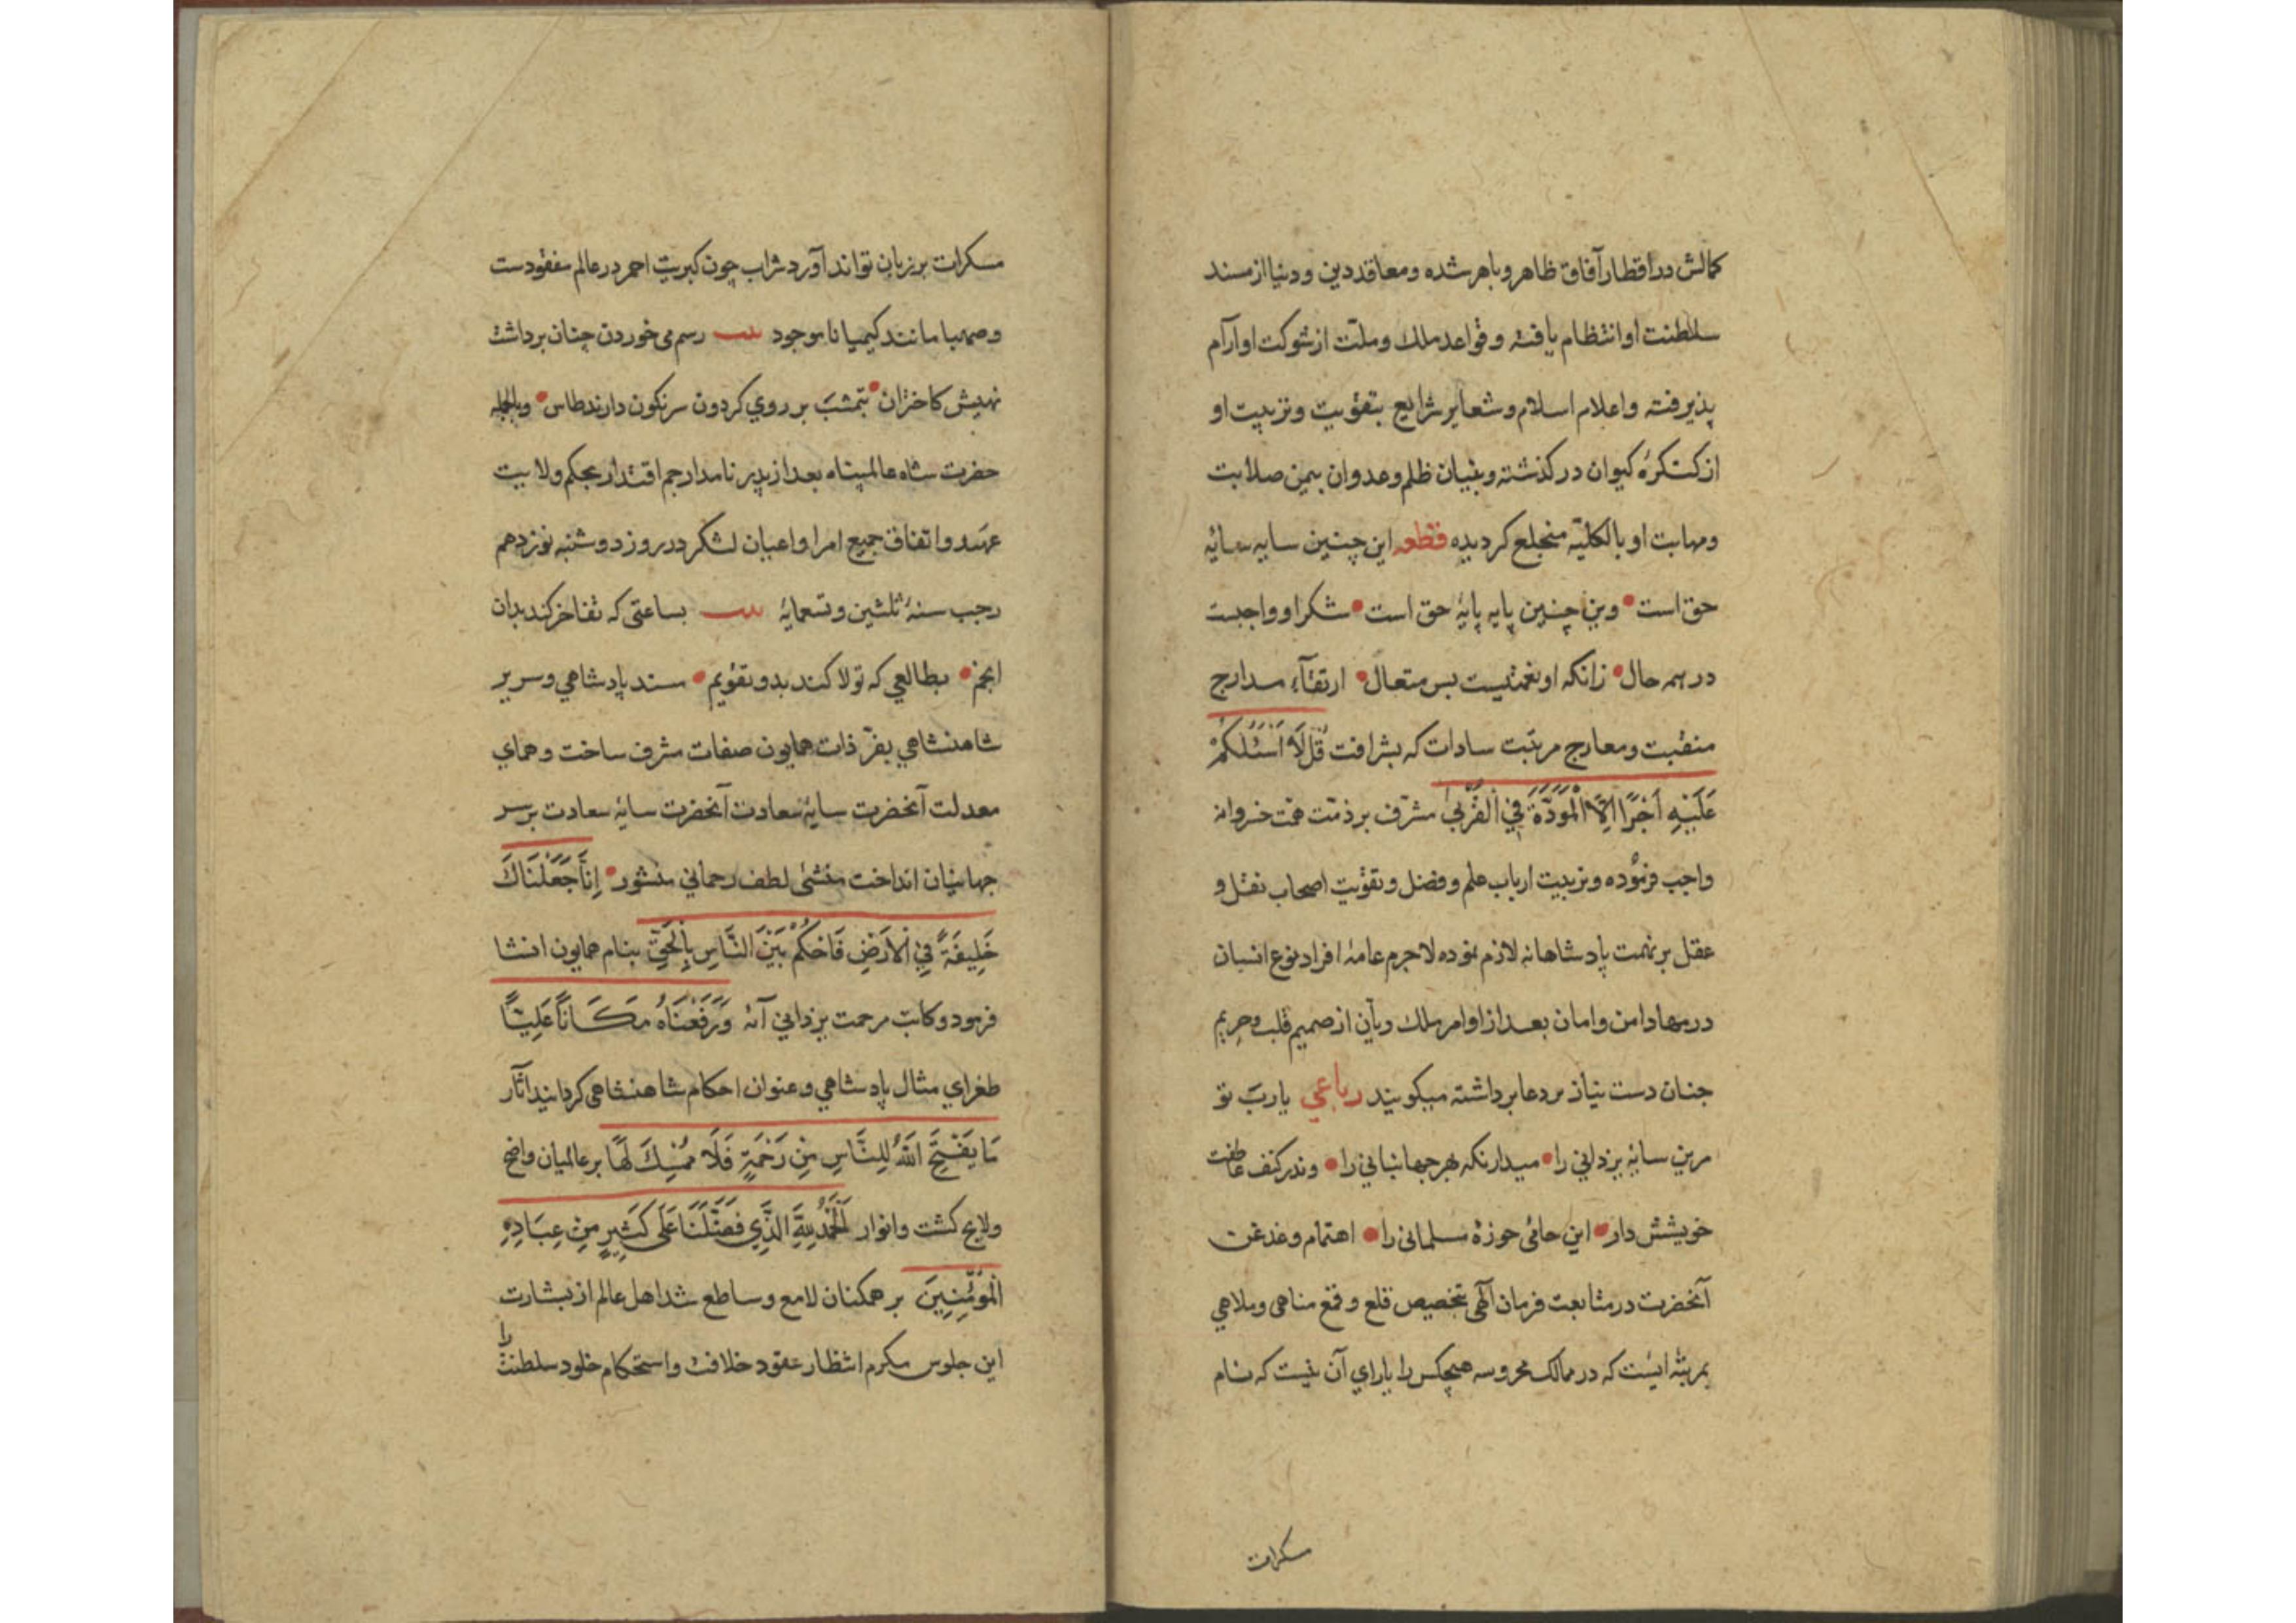 کمالش در اقطار آفاق ظاهر و باهر شده و معاقد دین و دنیا از مسند
سلطنت او انتظام یافته و قواعد ملک و ملّت از شوکت او آرام
پذیرفته و اعلام اسلام و شعایر شرایع بتقویت و تربیت او
از کنکرهٔ کیوان در کذشته و بنیان ظلم و عدوان بیمن صلابت
و مهابت او بالکلیّه منخلع کردیده قطعه این چنین سایه سایهٔ
حق است • وین چنین پایه پایهٔ حق است • شکر او واجبست
در همه حال • زانکه او نعمتیست بس متعال • ارتقآء مدارج
منقبت و معارج مرتبت سادات که بشرافت قُل لَا اَسْئَلُکُمْ
عَلَیْهِ اَجْرًا اِلَّا الْمَوَدَّةَ فِي الْقُرْبٰی مشرّف بر ذمّت همّت خسروانه
واجب فرموده و تربیت ارباب علم و فضل و تقویت اصحاب نقل و
عقل بر نهمت پادشاهانه لازم نموده لاجرم عامهٔ افراد نوع انسان
در مهاد امن و امان بعد از اوامر ملک دیّان از صمیم قلب و حریم
جنان دست نیاز بر دعا برداشته میکویند رباعي یاربّ تو
مرین سایهٔ یزدانی را • میدار نکه بهر جهانبانی را • وندر کنف عاطفت
خویشش دار • این حامی حوزهٔ مسلمانی را • اهتمام و غدغن
آنحضرت در متابعت فرمان آلهی بتخصیص قلع و قمع مناهی و ملاهي
بمرتبهٔ ایست که در ممالک محروسه هیچکس را یارای آن نیست که نام
مسکرات
مسکرات بر زبان تواند آورد شراب چون کبریت احمر در عالم مفقودست
و صهبا مانند کیمیا ناموجود بیت رسم می خوردن چنان برداشت
نهیش کاختران • بتمشب بر روي کردون سرنکون دارند طاس • و بالجمله
حضرت شاه عالمپناه بعد از پدر نامدار جم اقتدار بحکم ولایت
عهد و اتفاق جمیع امرا و اعیان لشکر در روز دوشنبه نوزدهم
رجب سنهٔ ثلثین و تسعمایهٔ بیت بساعتی که تفاخر کند بدان
انجم • بطالعي که تولا کند بدو تقویم • مسند پادشاهي و سریر
شاهنشاهي بفرّ ذات همایون صفات مشرف ساخت و همای
معدلت آنحضرت سایهٔ سعادت آنحضرت سایهٔ سعادت بر سر
جهانیان انداخت منشی لطف رحمانی منشور • اِنَّا جَعَلْنَاكَ
خَلِیفَةً فِي الْاَرْضِ فَاحْکُمْ بَیْنَ النَّاسِ بِالْحَقِّ بنام همایون انشا
فرمود و کاتب مرحمت یزدانی آیهٔ وَرَفَعْنَاهُ مَکَانًا عَلِیًّا
طغرای مثال پادشاهي و عنوان احکام شاهنشاهی کردانید آثار
مَا یَفْتَحِ اللّٰهُ لِلنَّاسِ مِن رَحْمَةٍ فَلَا مُمْسِكَ لَهَا بر عالمیان واضح
و لایح کشت و انوار اَلْحَمْدُ لِلّٰهِ الَّذِي فَضَّلَنَا عَلٰی کَثِیرٍ مِنْ عِبَادِهِ
الْمُؤْمِنِینَ بر همکنان لامع و ساطع شد اهل عالم از بشارت
این جلوس مکرم انتظار عقود خلافت و استحکام خلود سلطنت را